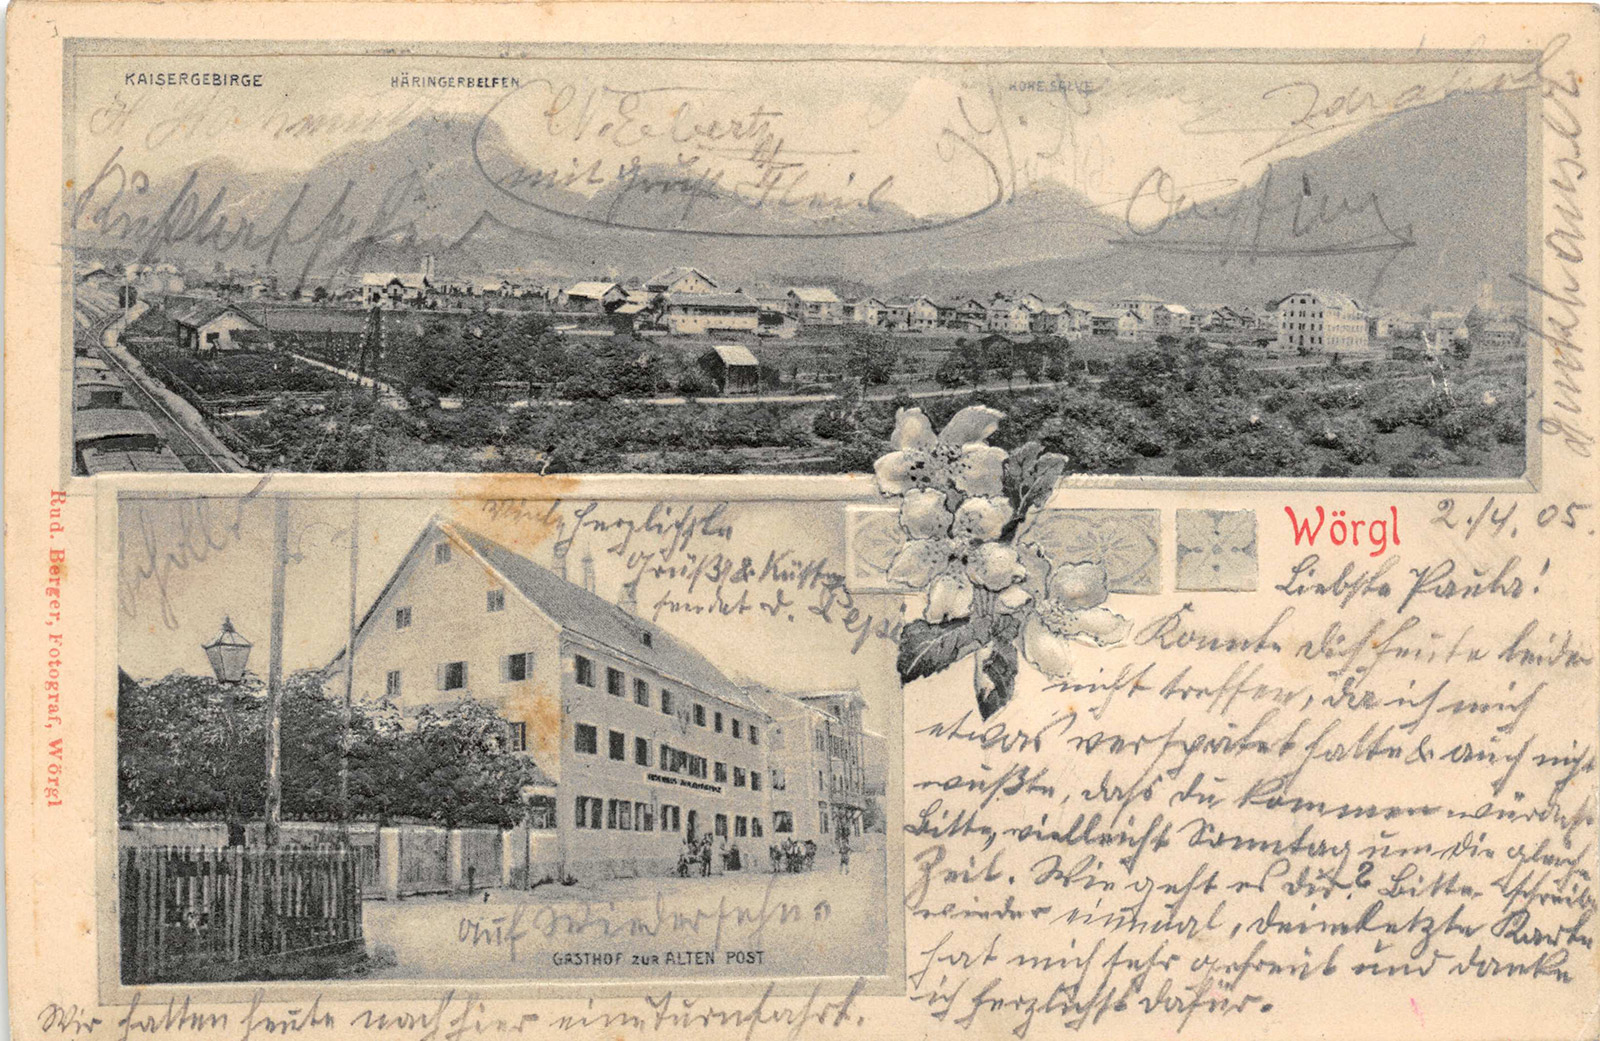 KAISERGEBIRGE
HÄRINGERBELFEN
HOHE SALVE
mit Gruß Heil
Rud. Berger, Fotograf, Wörgl
Wörgl 2./4. 05.
Liebste Paula!
Konnte Dich heute leider
nicht treffen, da ich mich
etwas verspätet hatte & auch nicht
wußte, dass du kommen würdest.
Bitte, vielleicht Sonntag um die gleiche
Zeit. Wie geht es dir? Bitte schreibe
wieder einmal, deine letzte Karte
hat mich sehr gefreut und danke
ich herzlichst dafür.
herzlichste
Grüße & Küsse
sendet d. Pepi
auf Wiedersehn.
GASTHOF ZUR ALTEN POST
Wir hatten heute nach hier eine Turnfahrt.